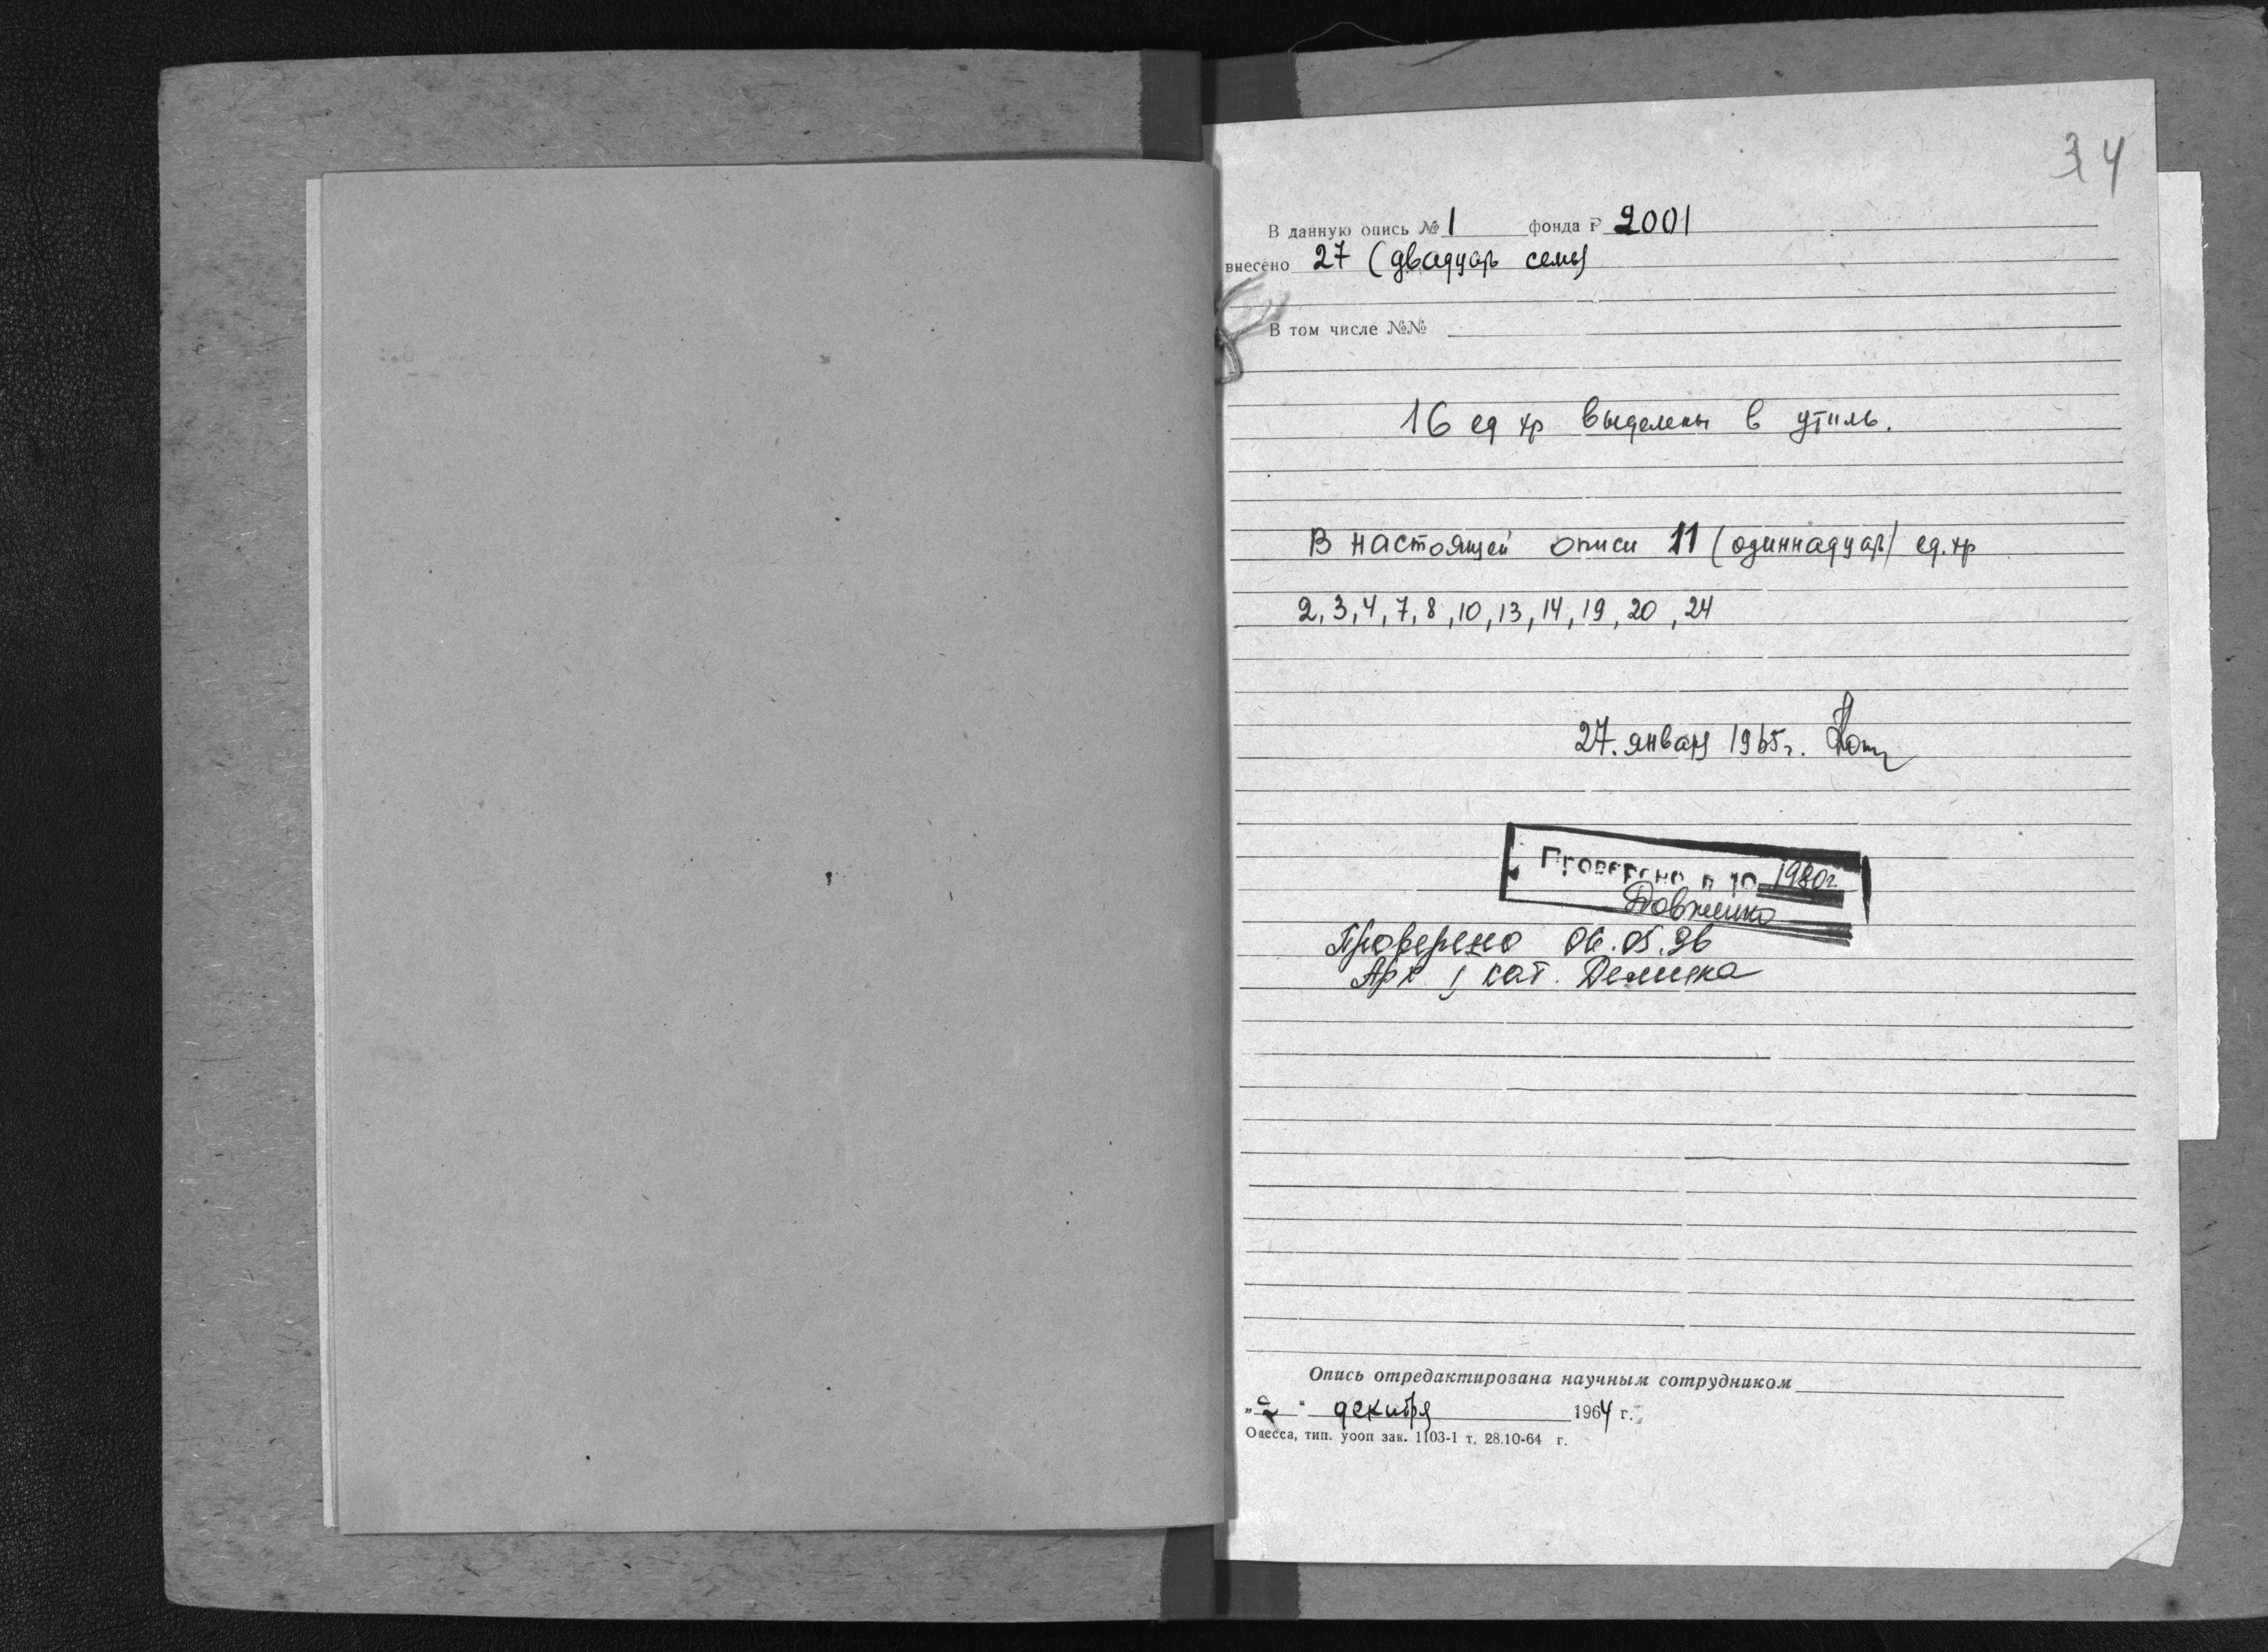 34
В данную опись № 1 фонда Р 2001
внесено 27 (двадцать семь)
В том числе №№
16 ед хр выделены в утиль.
В настоящей описи 11 (одиннадцать) ед. хр
2, 3, 4, 7, 8, 10, 13, 14, 19, 20, 24
27. января 1965 г.
Проверено 1980г
Довженко
Проверено 06.05.96
Арх I кат.
Опись отредактирована научным сотрудником
„2“ декабря 1964 г.
Одесса, тип. уооп зак. 1103-1 т. 28.10-64 г.